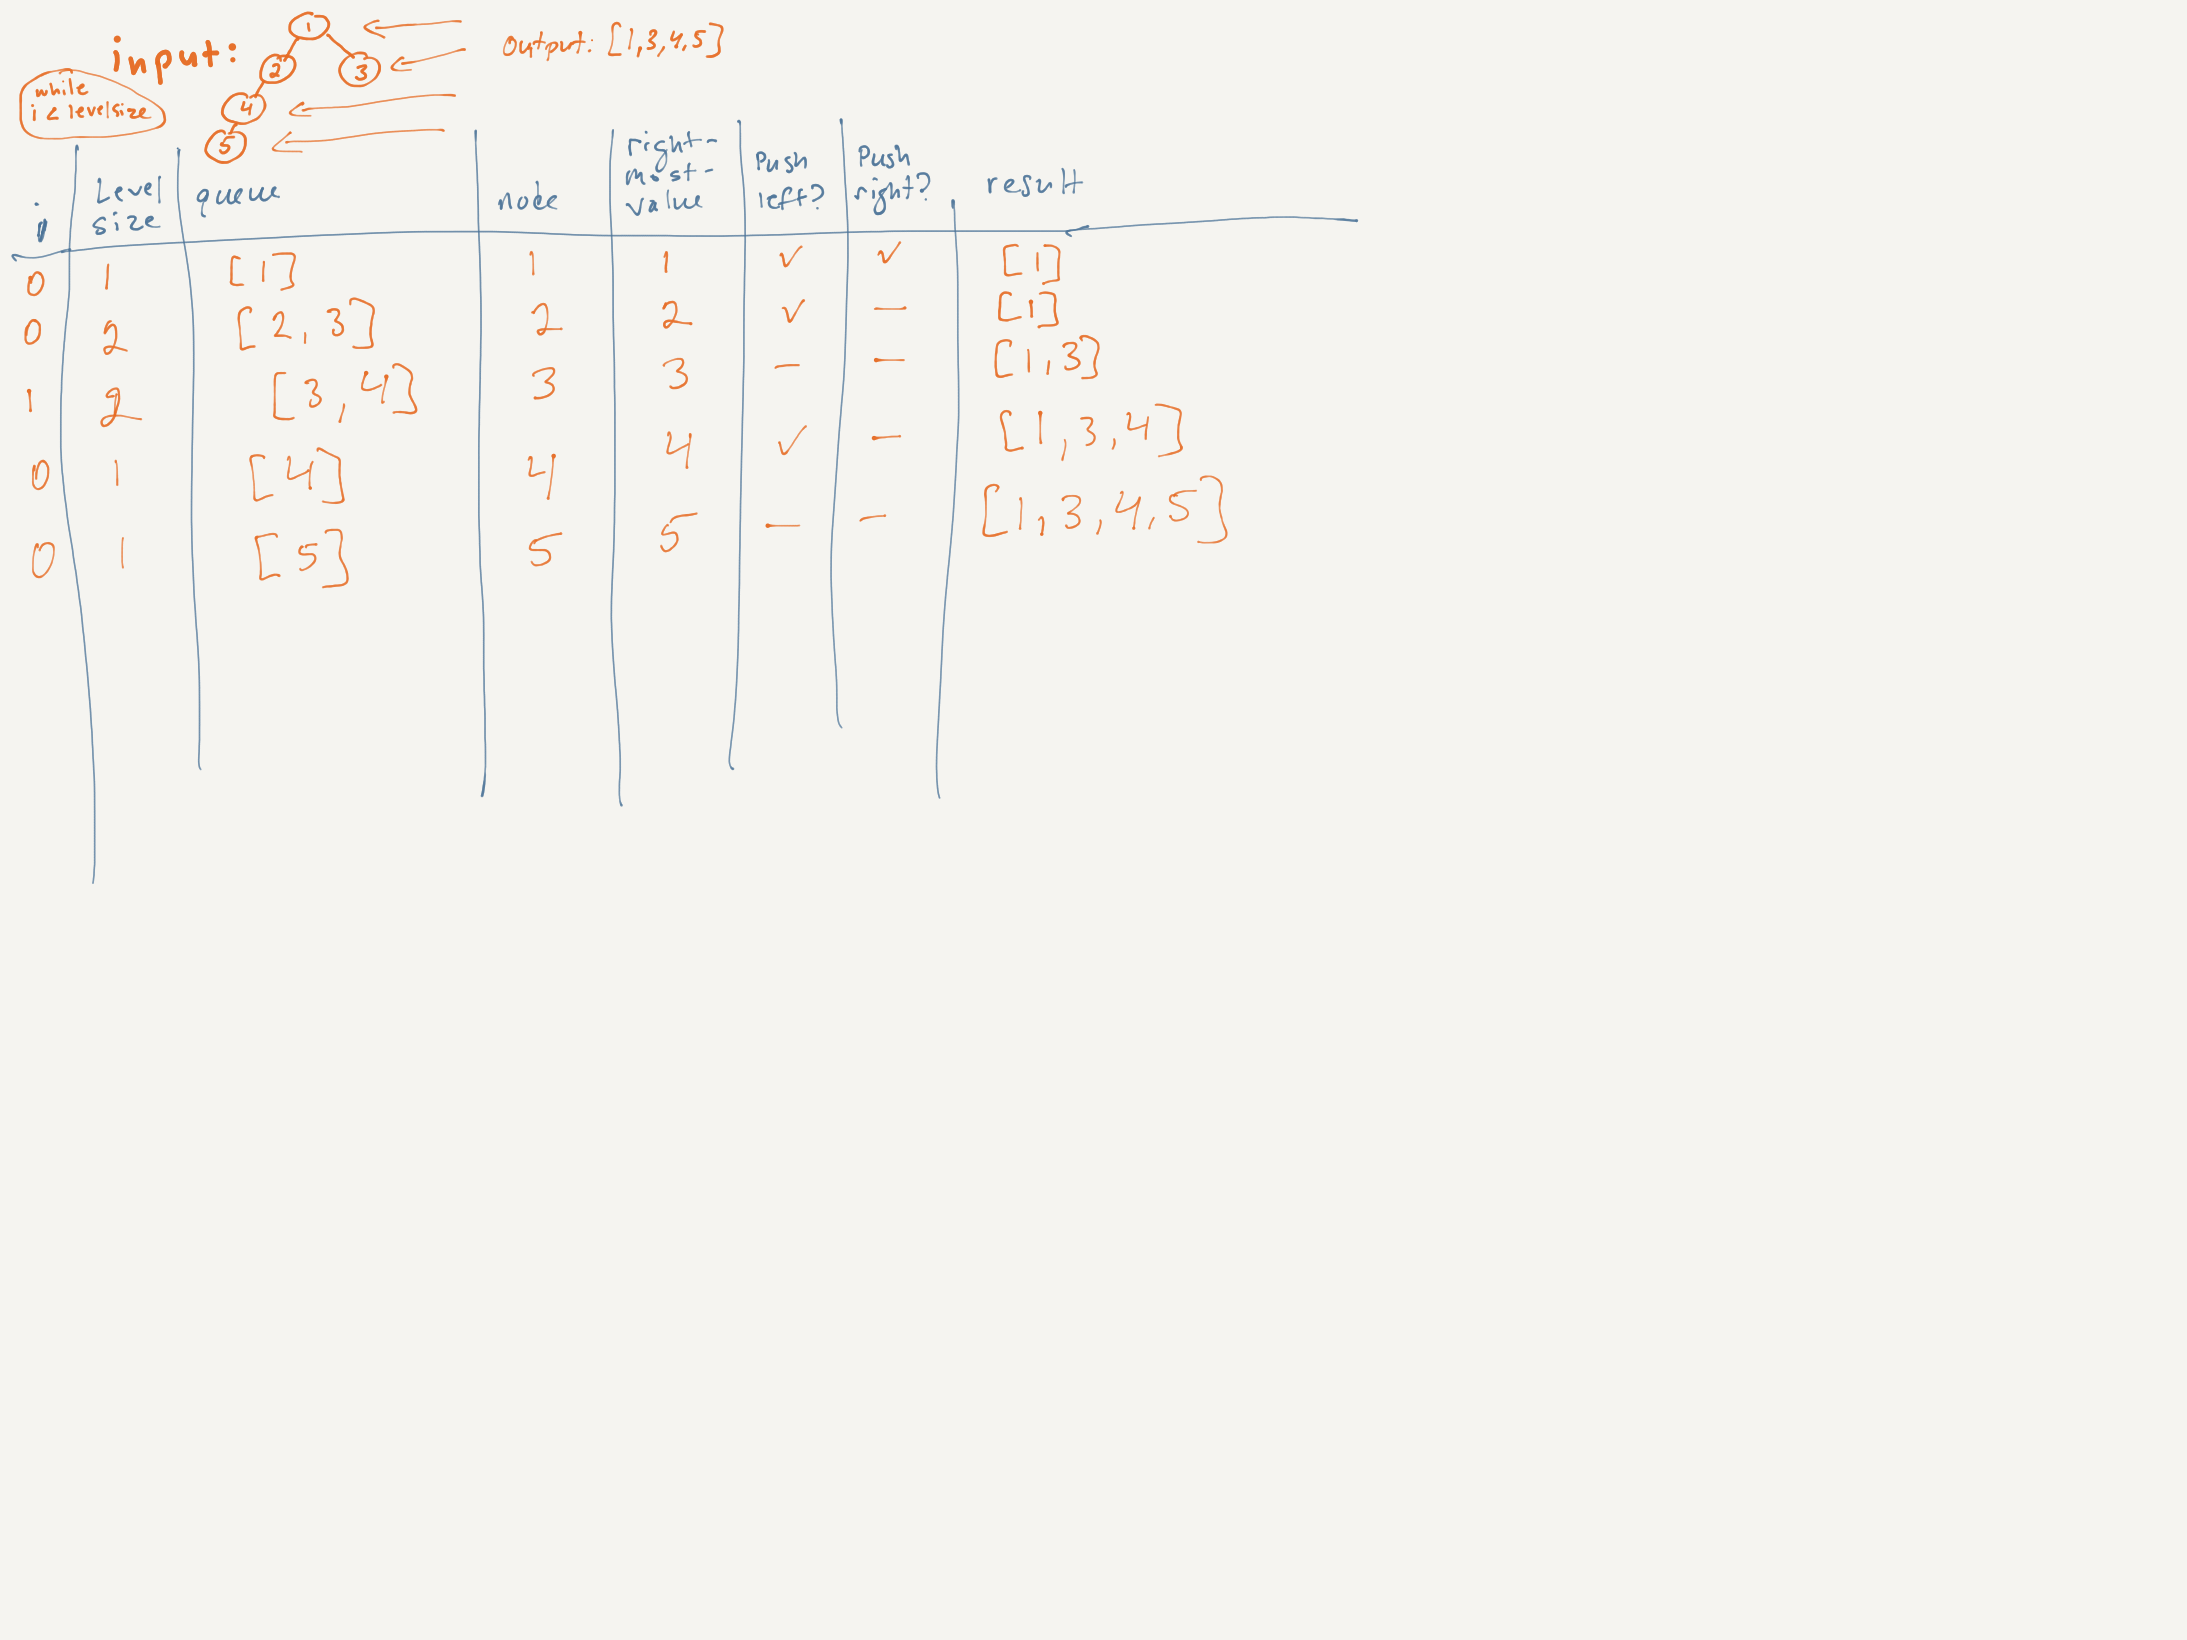 input:
1
2
3
4
5
output: [1,3,4,5]
while
i < levelsize
i
Level
size
queue
node
right-
most-
value
Push
left?
Push
right?
result
0 1 [1] 1 1 ✓ ✓ [1]
0 2 [2,3] 2 2 ✓ — [1]
1 2 [3,4] 3 3 — — [1,3]
0 1 [4] 4 4 ✓ — [1,3,4]
0 1 [5] 5 5 — — [1,3,4,5]